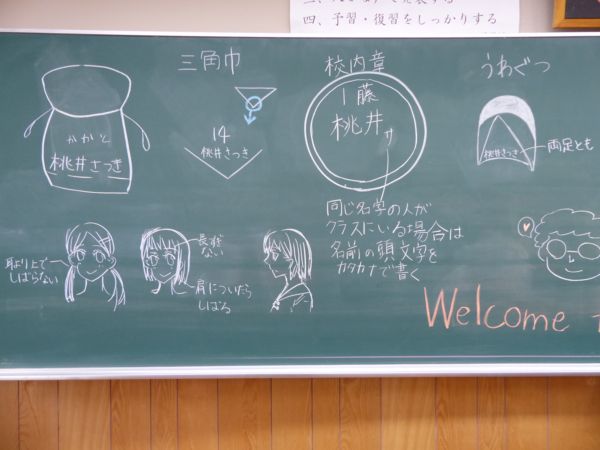 四、予習・復習をしっかりする
三角巾
校内章
うわぐつ
かかと
桃井さつき
14
桃井さつき
1藤
桃井
サ
桃井さつき
両足とも
同じ名字の人が
クラスにいる場合は
名前の頭文字を
カタカナで書く
耳より上で
しばらない
長すぎ
ない
肩についたら
しばる
Welcome